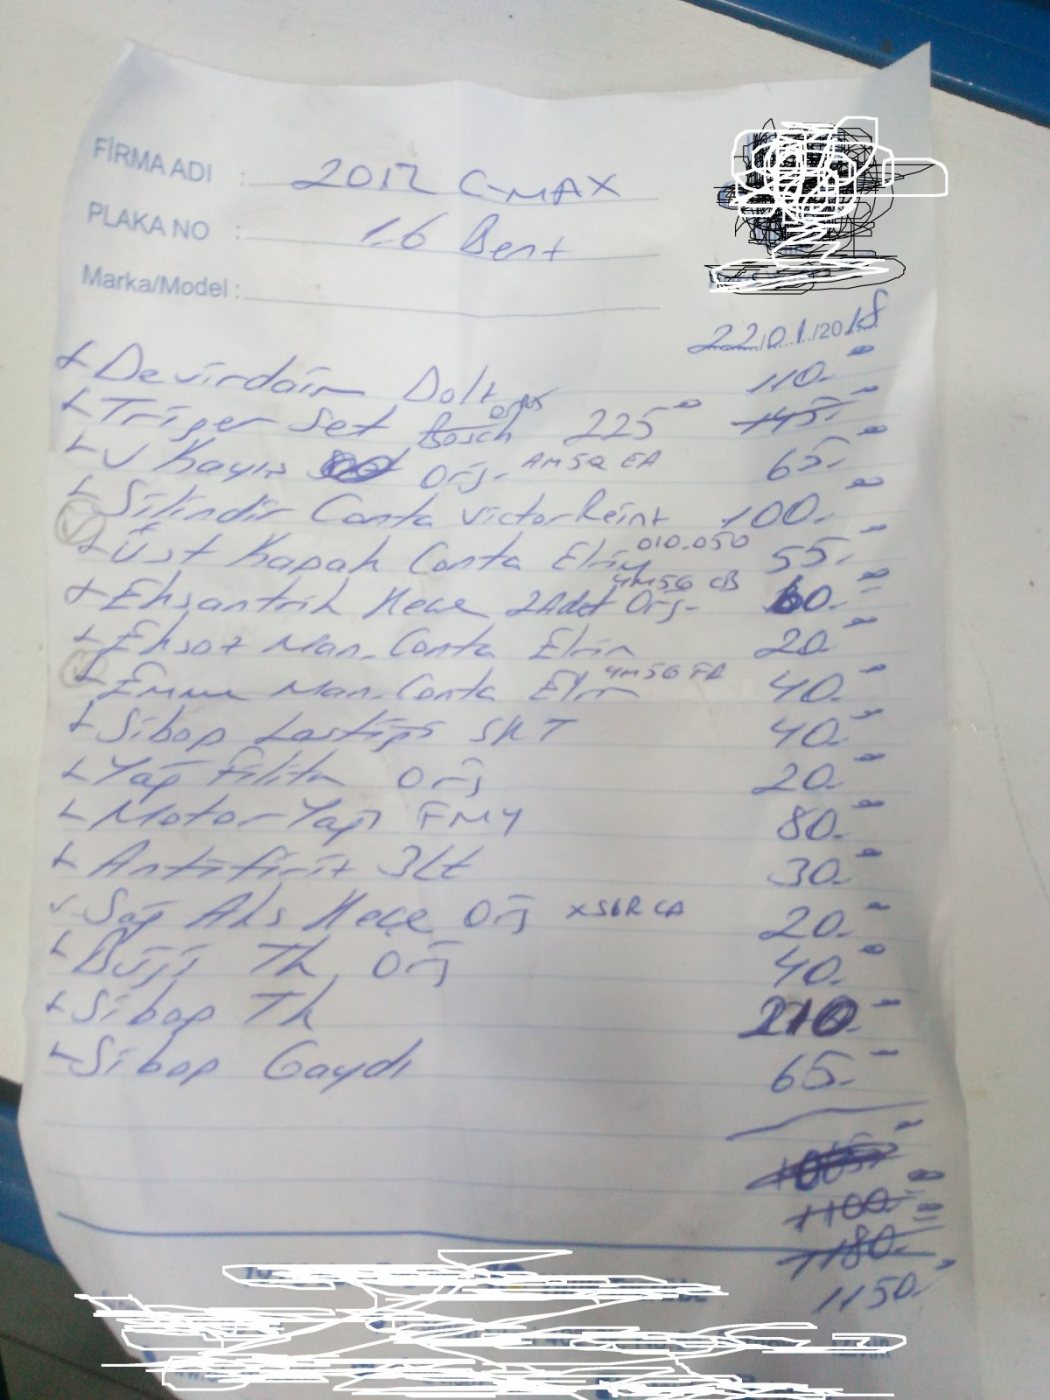 FİRMA ADI : 2012 C-MAX
PLAKA NO : 1.6 Bent
Marka/Model :
22/01/2018
Devirdaim Dolt 110.-
Triger Set Bosch orj 225 145.-
V Kayış Orj. AM5Q EA 65.-
Silindir Conta Victor Reinz 100.-
Üst Kapak Conta Elrin 010.050 55.-
Eksantrik Keçe 2 Adet Orj- 4M5G CB 60.-
Eksoz Man. Conta Elrin 20.-
Emme Man. Conta Elrin 4M5G FA 40.-
Sibop Lastiği SKT 40.-
Yağ Filitre Orj 20.-
Motor Yağı FMY 80.-
Antifiriz 3Lt 30.-
Sağ Aks Keçe Orj XS6R CA 20.-
Buji Tk Orj 40.-
Sibop Tk 210.-
Sibop Gaydı 65.-
1100.-
1180.-
1150.-